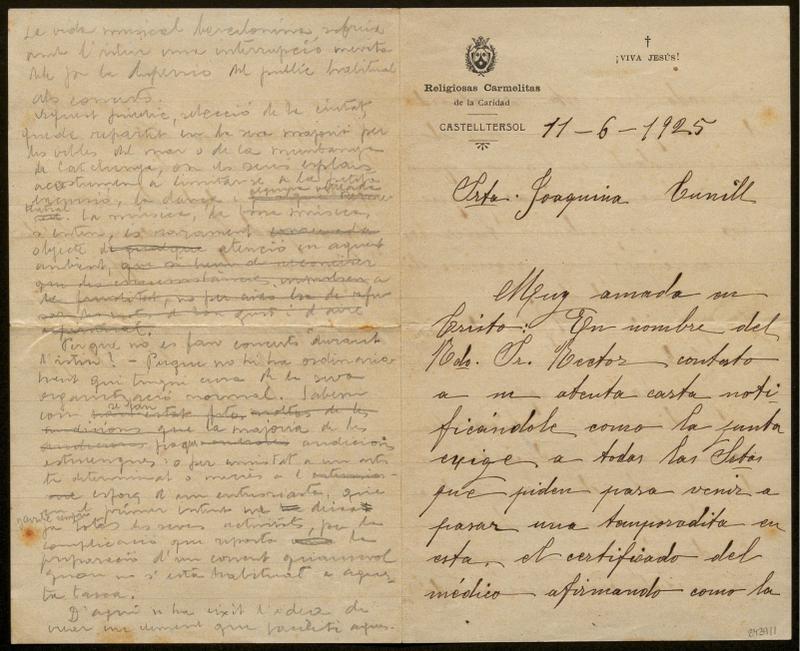 La vida musical barcelonina, sofreix
amb l'istiu una interrupció
per la dispersió del públic habitual
als concerts.
Aquest públic, selecció de la ciutat,
queda repartit en la seva majoria per
les viles del mar o de la muntanya
de Catalunya, on els seus esplais
acostumen a limitar-se a la petita
la dansa i
La música, de bona música
s'entén, és rarament
objecte de atenció en aquest
ambient,
Perquè no es fan concerts durant
l'istiu? – Perquè no hi ha ordinària-
ment qui tingui cura de la seva
organització normal. Sabem
com es fan
que la majoria de les
audicions
estiuenques: o per amistat a un artis-
ta determinat o mercès a l'
esforç d'un entusiasta, que
en el primer intent
ja totes les seves activitats, per la
complicació que reporta la
preparació d'un concert qualsevol
quan no s'està habituat a aques-
ta tasca.
D'aquí n'ha eixit l'idea de
crear un element que faciliti aques-
✝
¡VIVA JESÚS!
Religiosas Carmelitas
de la Caridad
CASTELLTERSOL
11-6-1925
Srta. Joaquina Cunill
Muy amada en
Cristo: En nombre del
Rdo. Sr. Rector contesto
a su atenta carta noti-
ficándole como la junta
exige a todas las Srtas
que piden para venir a
pasar una temporadita en
esta, el certificado del
médico afirmando como la
2439/1